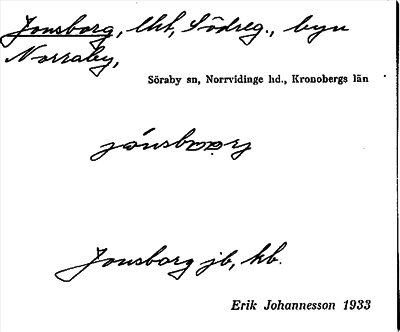 Jonsborg, lht, Södreg., byn
Norraby,
Söraby sn, Norrvidinge hd., Kronobergs län
Jonsborg jb, kb.
Erik Johannesson 1933